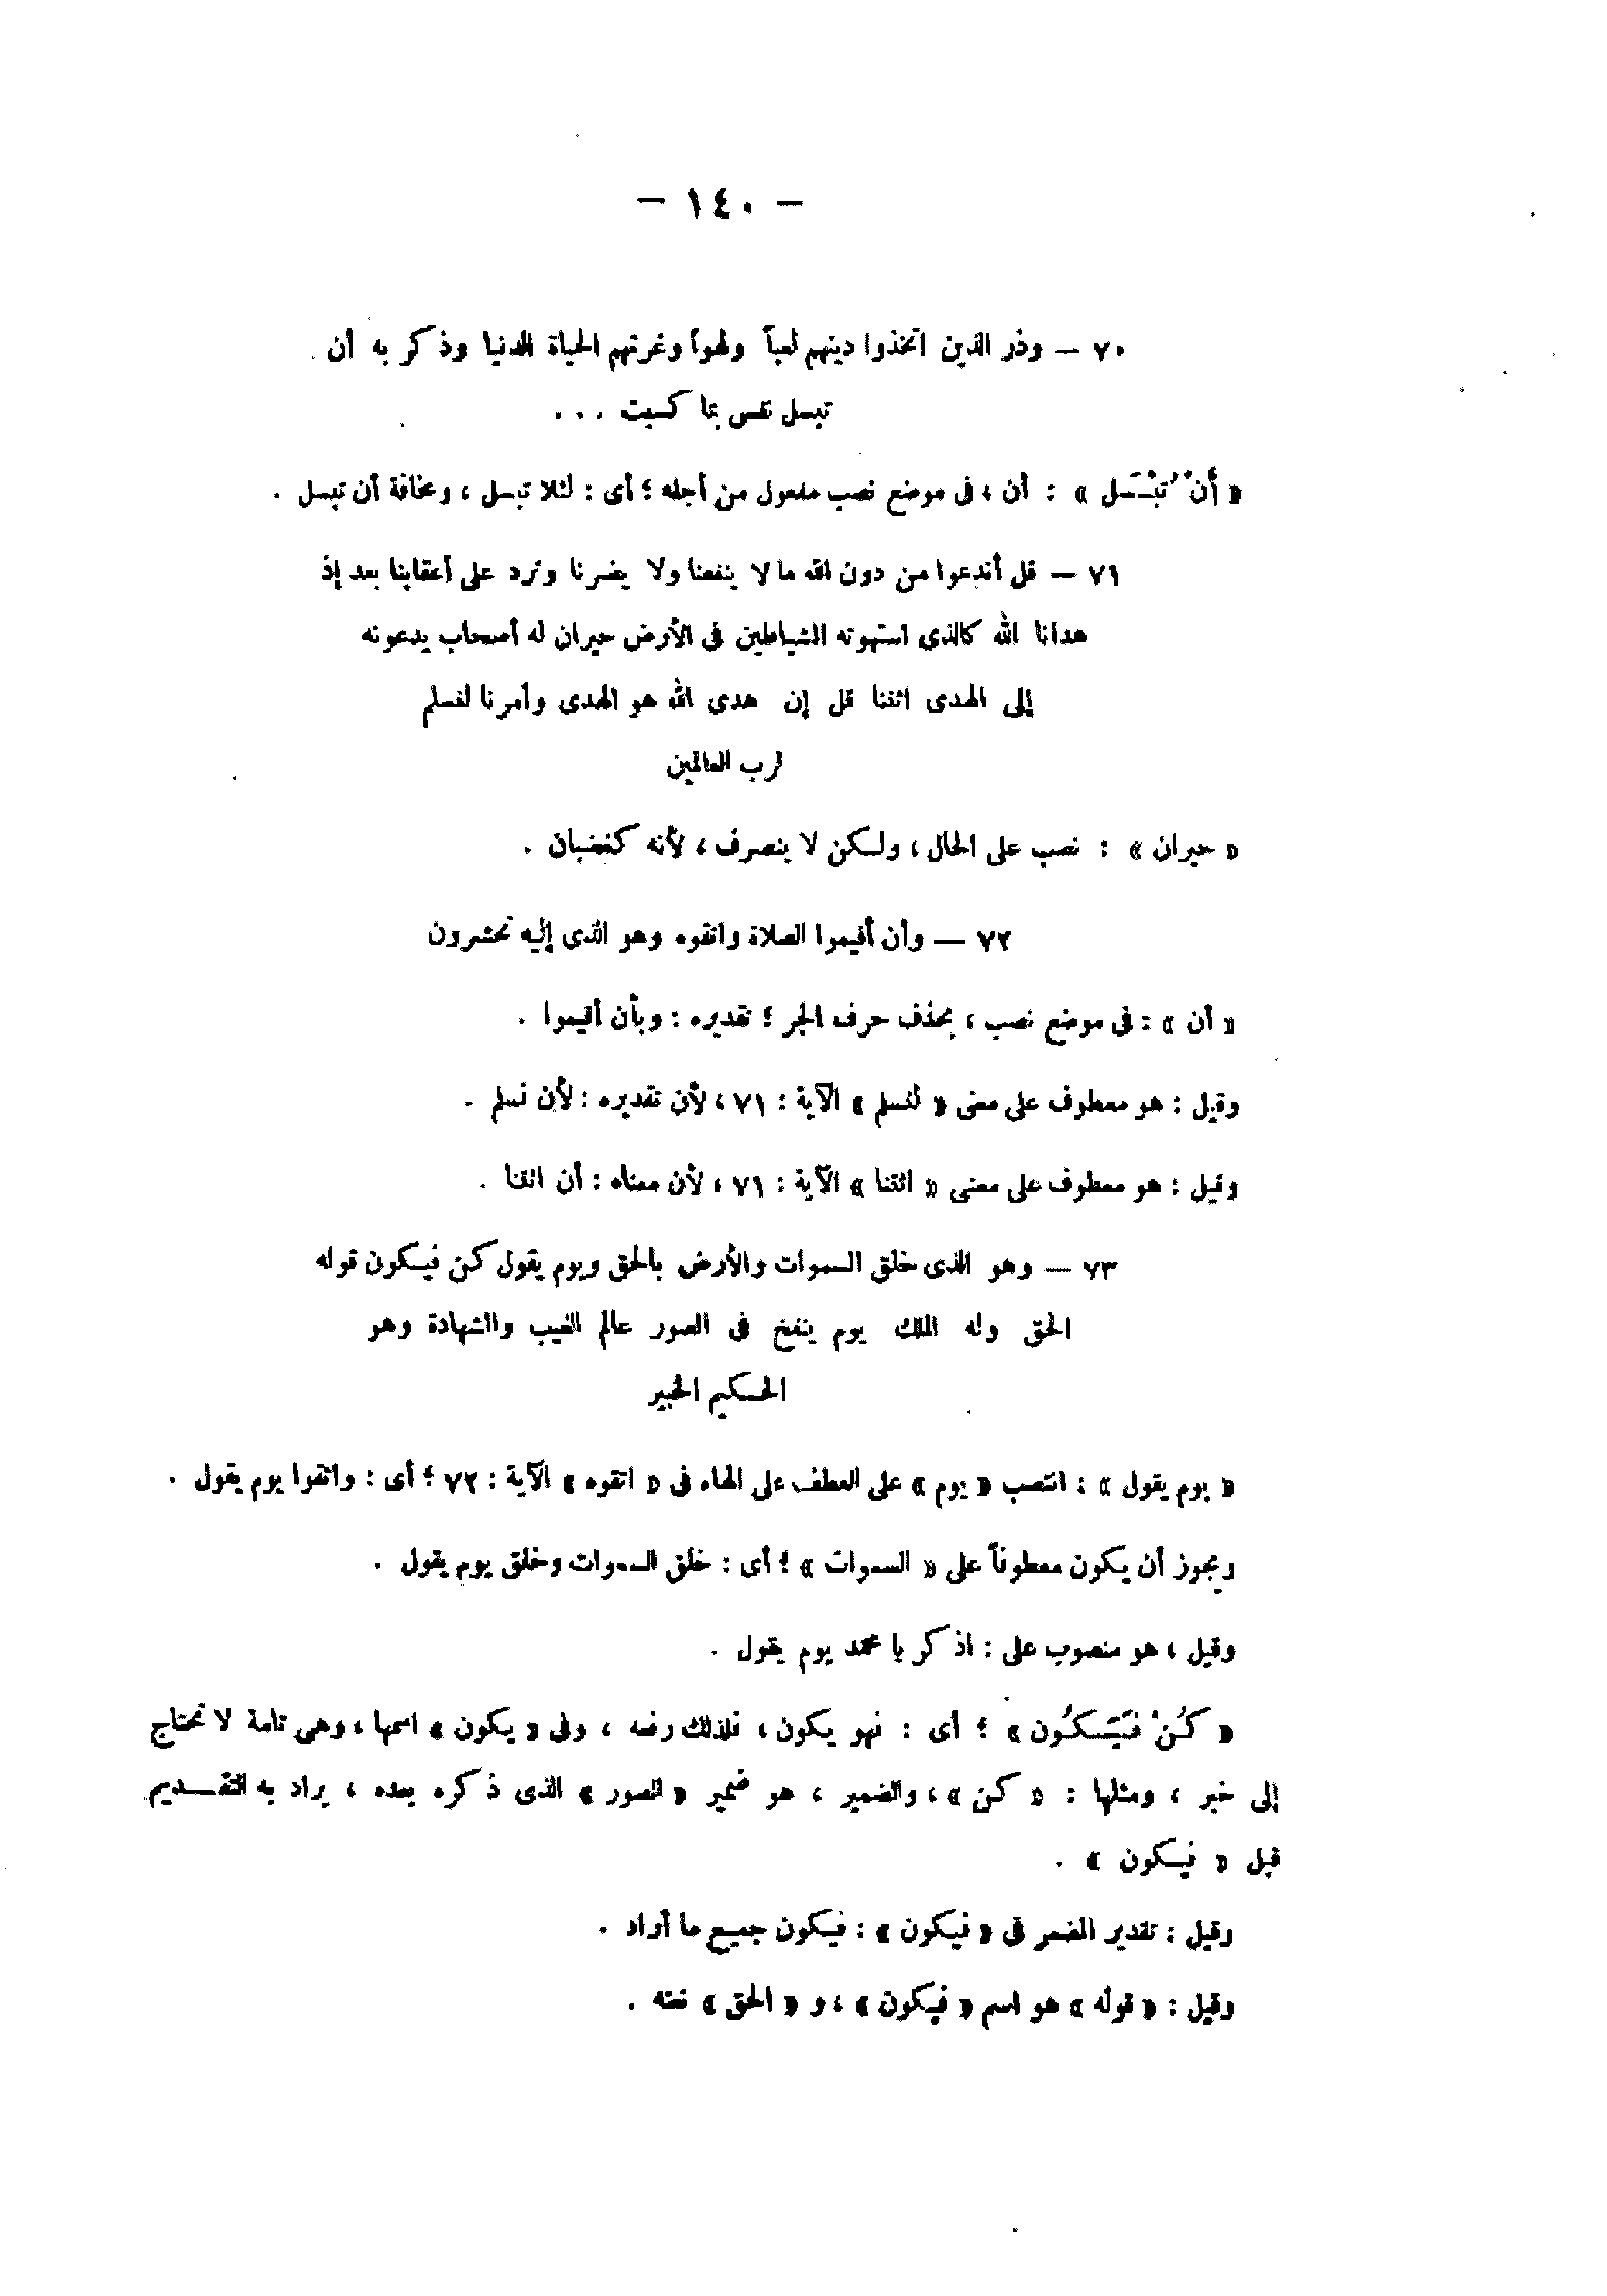 — ١٤٠ —
٧٠ — وذر الذين اتخذوا دينهم لعباً ولهواً وغرتهم الحياة الدنيا وذكر به أن
تبسل نفس بما كسبت ...
« أَنْ تُبْسَل » : أن ، فى موضع نصب مفعول من أجله ؛ أى : لئلا تبسل ، ومخافة أن تبسل .
٧١ — قل أندعوا من دون الله ما لا ينفعنا ولا يضرنا ونرد على أعقابنا بعد إذ
هدانا الله كالذى استهوته الشياطين فى الأرض حيران له أصحاب يدعونه
إلى الهدى ائتنا قل إن هدى الله هو الهدى وأمرنا لنسلم
لرب العالمين
« حيران » : نصب على الحال ، ولكن لا ينصرف ، لأنه كغضبان .
٧٢ — وأن أقيموا الصلاة واتقوه وهو الذى إليه تحشرون
« أن » : فى موضع نصب ، بحذف حرف الجر ؛ تقديره : وبأن أقيموا .
وقيل : هو معطوف على معنى « لنسلم » الآية : ٧١ ، لأن تقديره : لأن نسلم .
وقيل : هو معطوف على معنى « ائتنا » الآية : ٧١ ، لأن معناه : أن ائتنا .
٧٣ — وهو الذى خلق السموات والأرض بالحق ويوم يقول كن فيكون قوله
الحق وله الملك يوم ينفخ فى الصور عالم الغيب والشهادة وهو
الحكيم الخبير
« يوم يقول » : انتصب « يوم » على العطف على الهاء فى « اتقوه » الآية : ٧٢ ؛ أى : واتقوا يوم يقول .
ويجوز أن يكون معطوفاً على « السموات » ؛ أى : خلق السموات وخلق يوم يقول .
وقيل ، هو منصوب على : اذكر يا محمد يوم يقول .
« كُنْ فَيَكُون » ؛ أى : فهو يكون ، فلذلك رفعه ، وفى « يكون » اسمها ، وهى تامة لا تحتاج
إلى خبر ، ومثلها : « كن » ، والضمير ، هو ضمير « الصور » الذى ذكره بعده ، يراد به التقديم
قبل « فيكون » .
وقيل : تقدير المضمر فى « فيكون » : فيكون جميع ما أراد .
وقيل : « قوله » هو اسم « فيكون » ، و « الحق » نعته .